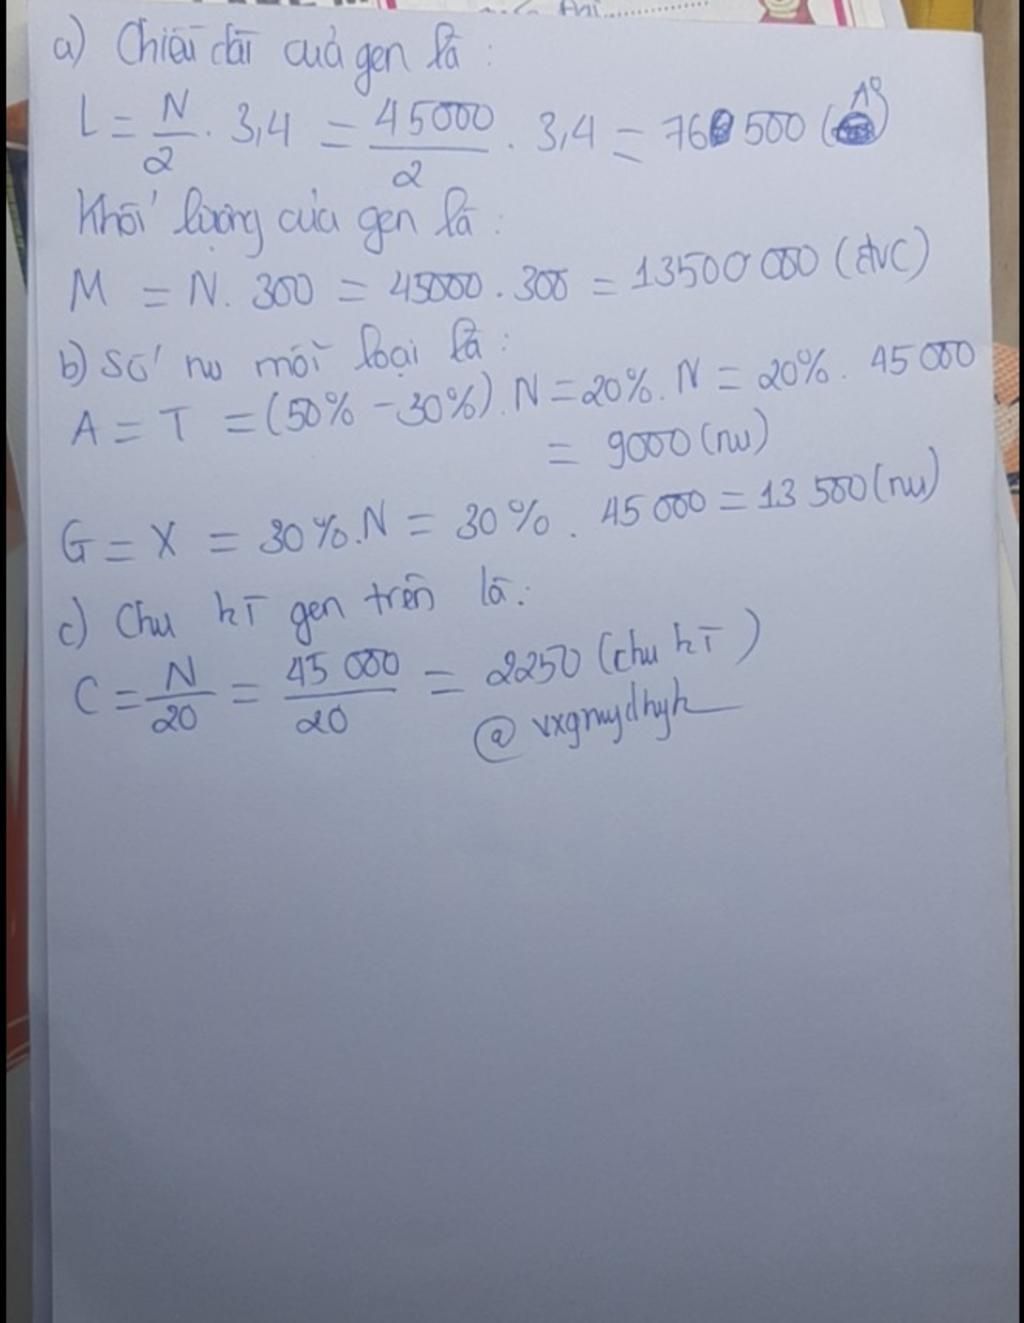 a) Chiều dài của gen là :
L = N/2 . 3,4 = 45000/2 . 3,4 = 76500 (A°)
Khối lượng của gen là :
M = N. 300 = 45000 . 300 = 13500 000 (đvC)
b) Số nu mỗi loại là :
A = T = (50% - 30%) . N = 20% . N = 20% . 45 000
= 9000 (nu)
G = X = 30% . N = 30% . 45 000 = 13 500 (nu)
c) Chu kì gen trên là :
C = N/20 = 45 000/20 = 2250 (chu kì)
@ vxgmydhyh